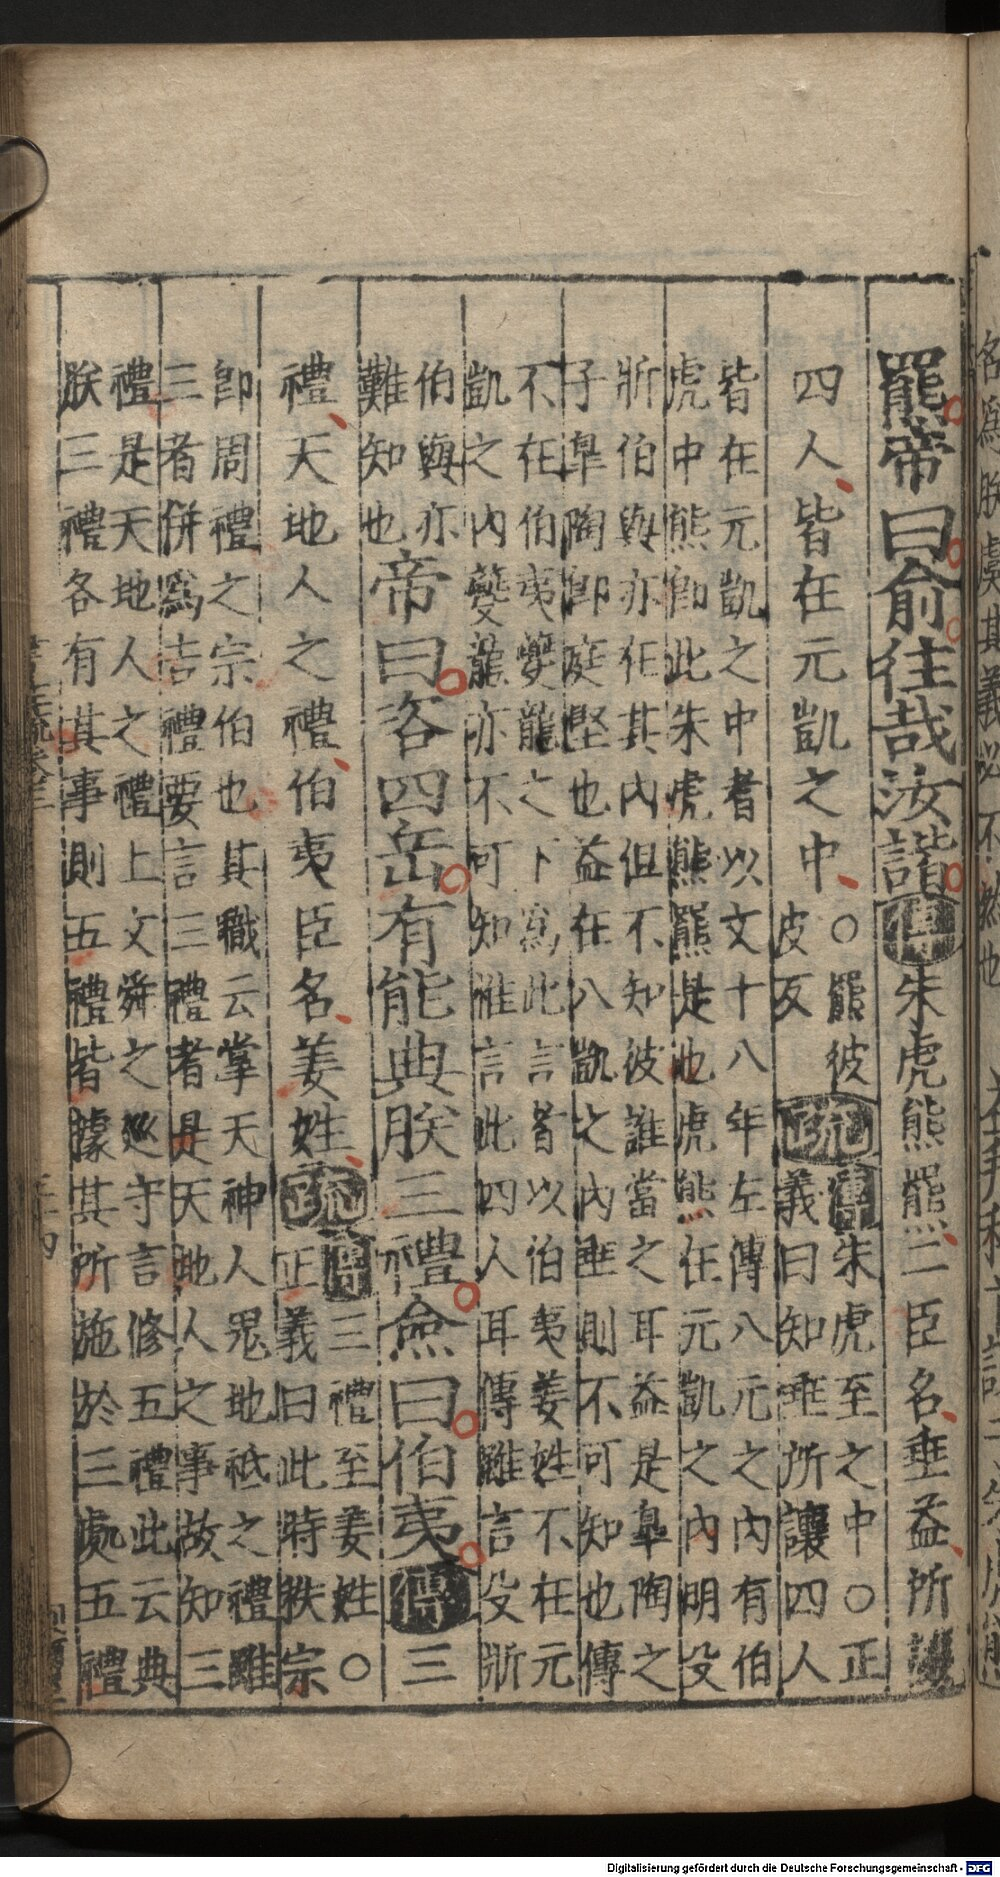 羆帝曰俞往哉汝諧傳朱虎熊羆二臣名垂益所讓
四人皆在元凱之中○羆彼
皮反疏傳朱虎至之中○正
義曰知垂所讓四人
皆在元凱之中者以文十八年左傳八元之內有伯
虎中熊卽此朱虎熊羆是也虎熊在元凱之內明殳
斨伯與亦在其內但不知彼誰當之耳益是臯陶之
子臯陶卽庭堅也益在八凱之內垂則不可知也傳
不在伯夷夔龍之下爲此言者以伯夷姜姓不在元
凱之內夔龍亦不可知惟言此四人耳傳雖言殳斨
伯與亦
難知也帝曰咨四岳有能典朕三禮僉曰伯夷傳三
禮天地人之禮伯夷臣名姜姓疏傳三禮至姜姓○
正義曰此時秩宗
卽周禮之宗伯也其職云掌天神人鬼地祇之禮雖
三者併爲吉禮要言三禮者是天地人之事故知三
禮是天地人之禮上文舜之巡守言修五禮此云典
朕三禮各有其事則五禮皆據其所施於三處五禮
Digitalisierung gefördert durch die Deutsche Forschungsgemeinschaft - DFG